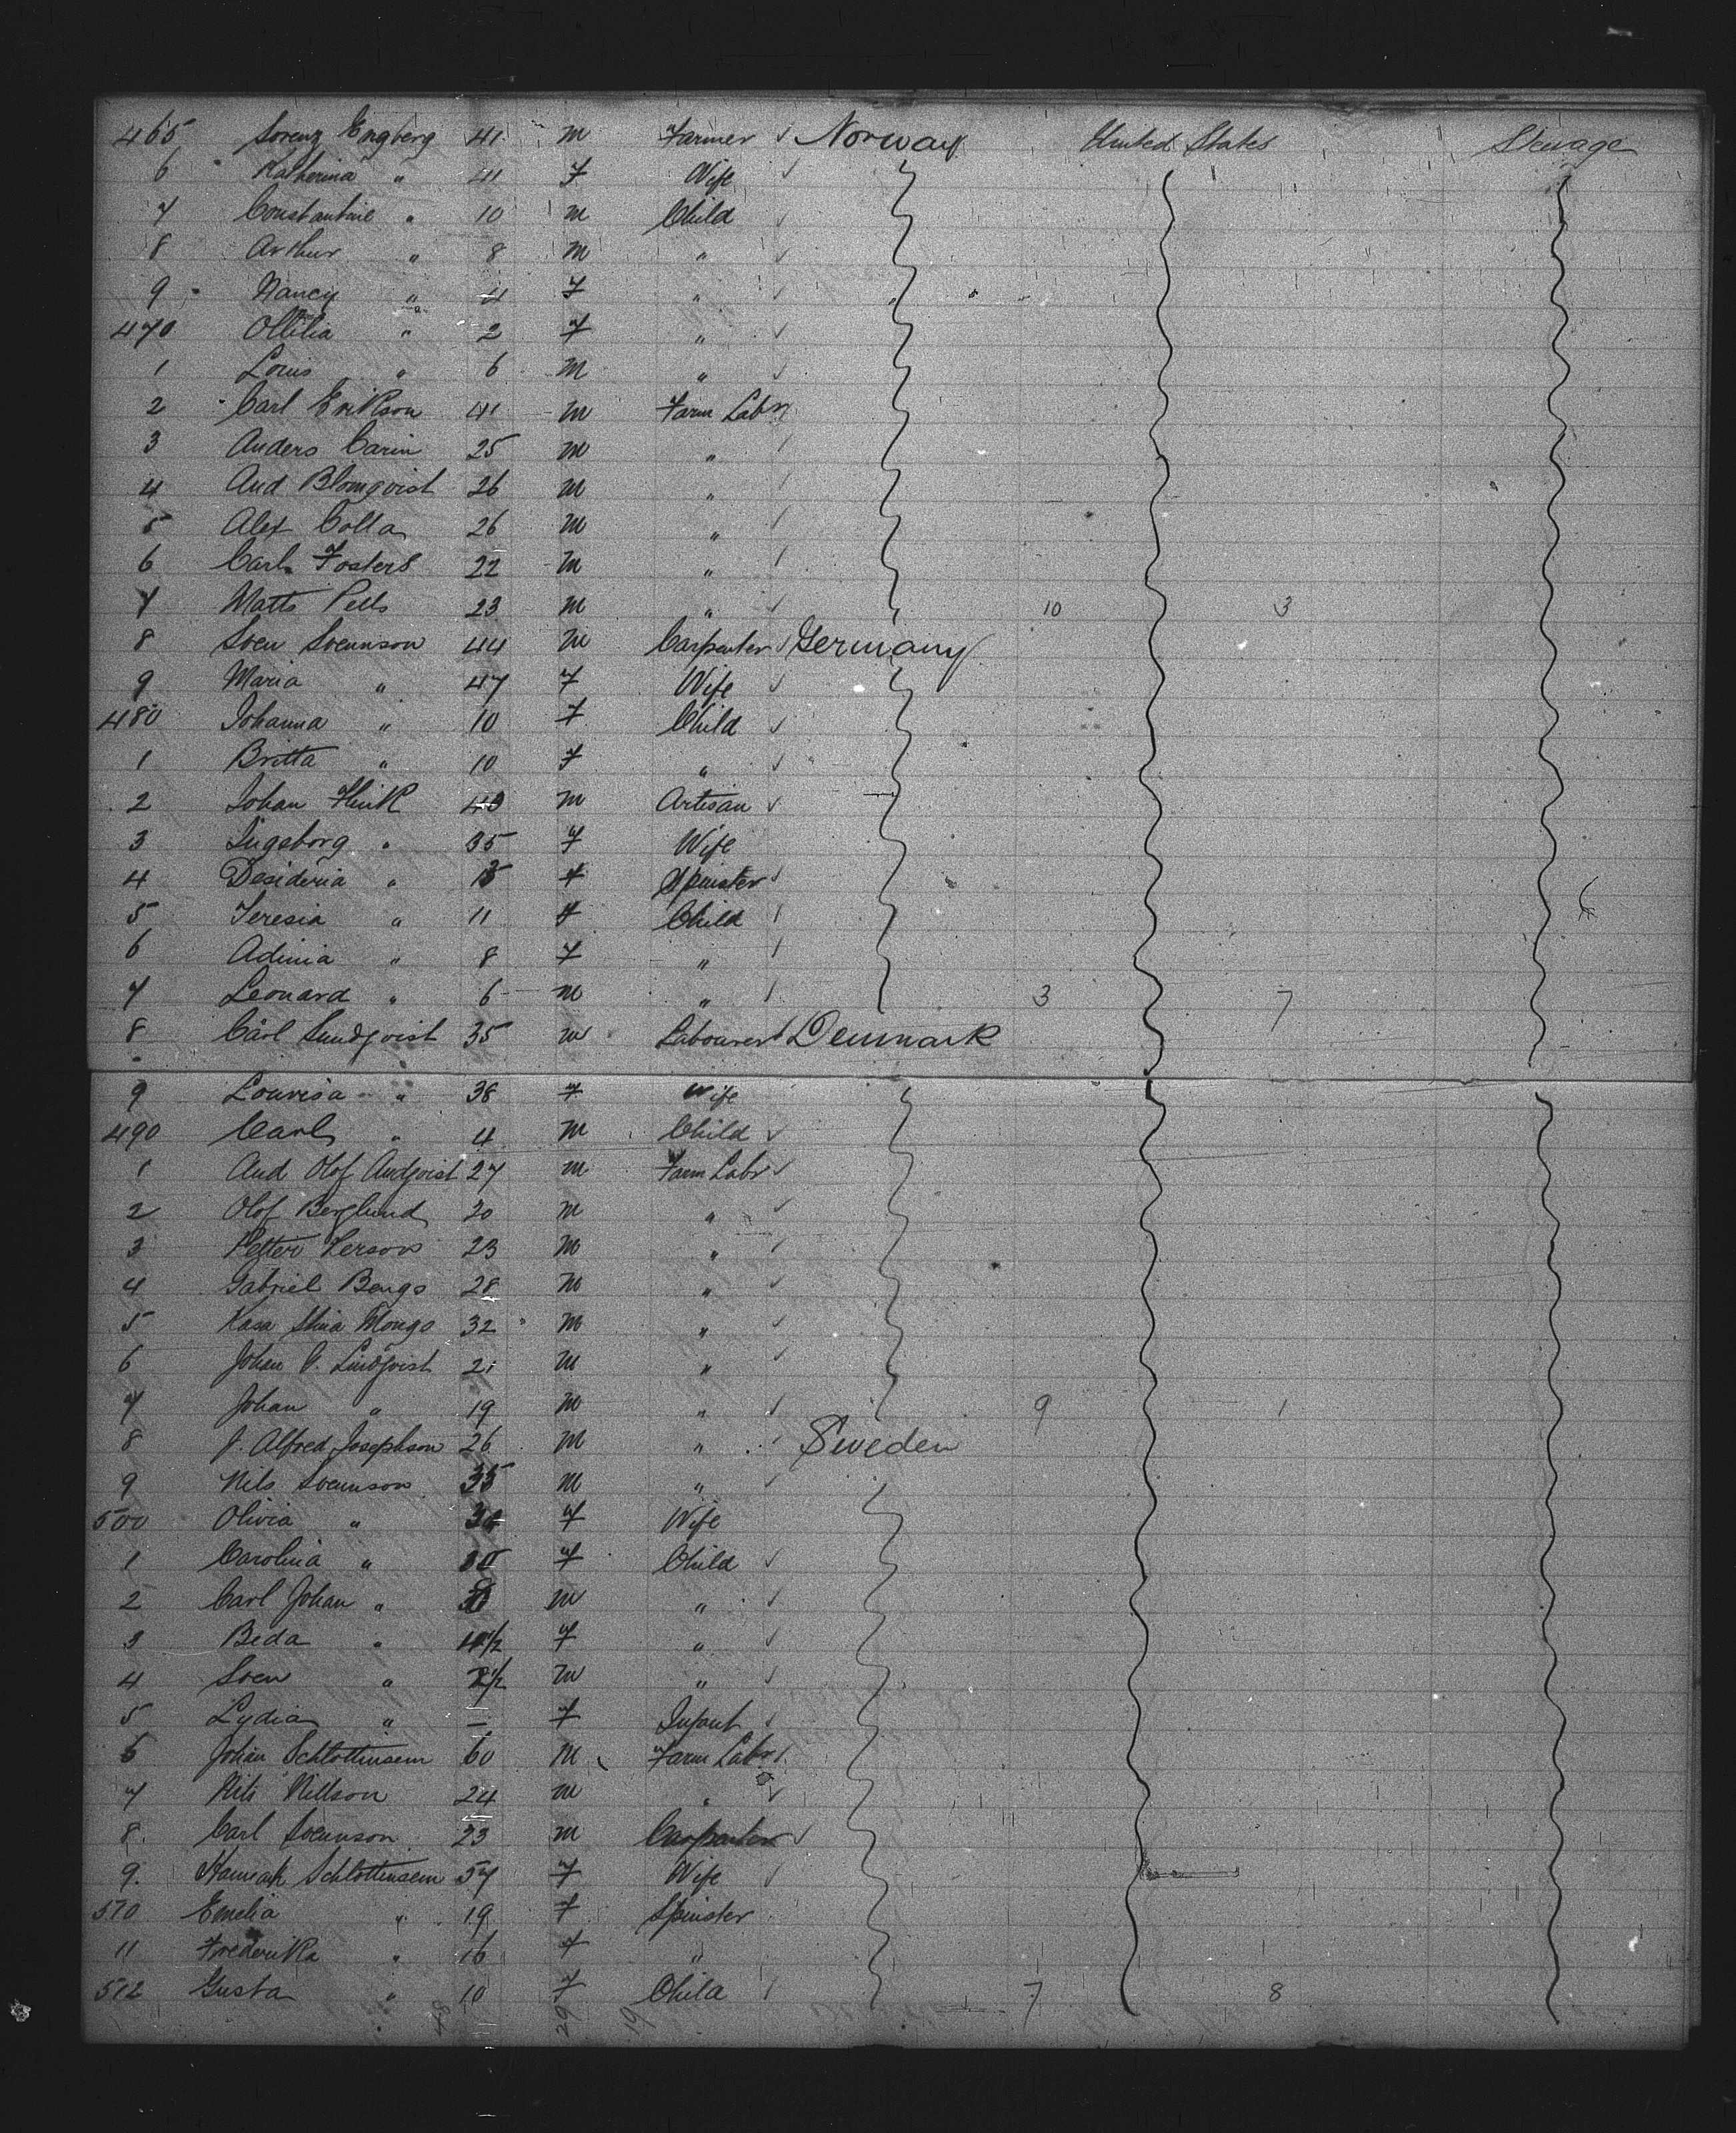 465 Lorenz Engberg 41 m Farmer Norway United States Steerage
6 Katherina " 41 F Wife
7 Constantine " 10 m Child
8 Arthur " 8 m "
9 Nancy " 4 F "
470 Ottilia " 2 F "
1 Louis " 6 m "
2 Carl Erikson 41 m Farm Labr
3 Anders Carin 25 m "
4 And Blomqvist 26 m "
5 Alex Colla 26 m "
6 Carl Fosters 22 m "
7 Matts Pells 23 m " 10 3
8 Sven Svennson 44 m Carpenter Germany
9 Maria " 47 F Wife
480 Johanna " 10 F Child
1 Britta " 10 F "
2 Johan Flink 40 m Artisan
3 Ingeborg " 35 F Wife
4 Desideria " 15 F Spinster
5 Teresia " 11 F Child
6 Adinia " 8 F "
7 Leonard " 6 m " 3 7
8 Carl Sundqvist 35 m Labourer Denmark
9 Louvisa " 38 F Wife
490 Carl " 4 m Child
1 And Olof Andqvist 27 m Farm Labr
2 Olof Berglund 20 m "
3 Petter Person 23 m "
4 Gabriel Bengs 28 m "
5 Kasa Stina Mongo 32 m "
6 Johan G. Lindqvist 21 m "
7 Johan " 19 m " 9 1
8 J. Alfred Josephson 26 m " Sweden
9 Nils Svennson 35 m "
500 Olivia " F Wife
1 Carolina " F Child
2 Carl Johan " m "
3 Beda " 4 1/2 F "
4 Sven " 2 1/2 m "
5 Lydia " – F Infant
6 Johan Schlottinsem 60 m Farm Labr
7 Nils Nillson 24 m "
8. Carl Svennson 23 m Carpenter
9. Hannah Schlottinsem 57 F Wife
510 Emelia " 19 F Spinster
11 Frederika " 16 F "
512 Gusta " 10 F Child 7 8
48 29 19